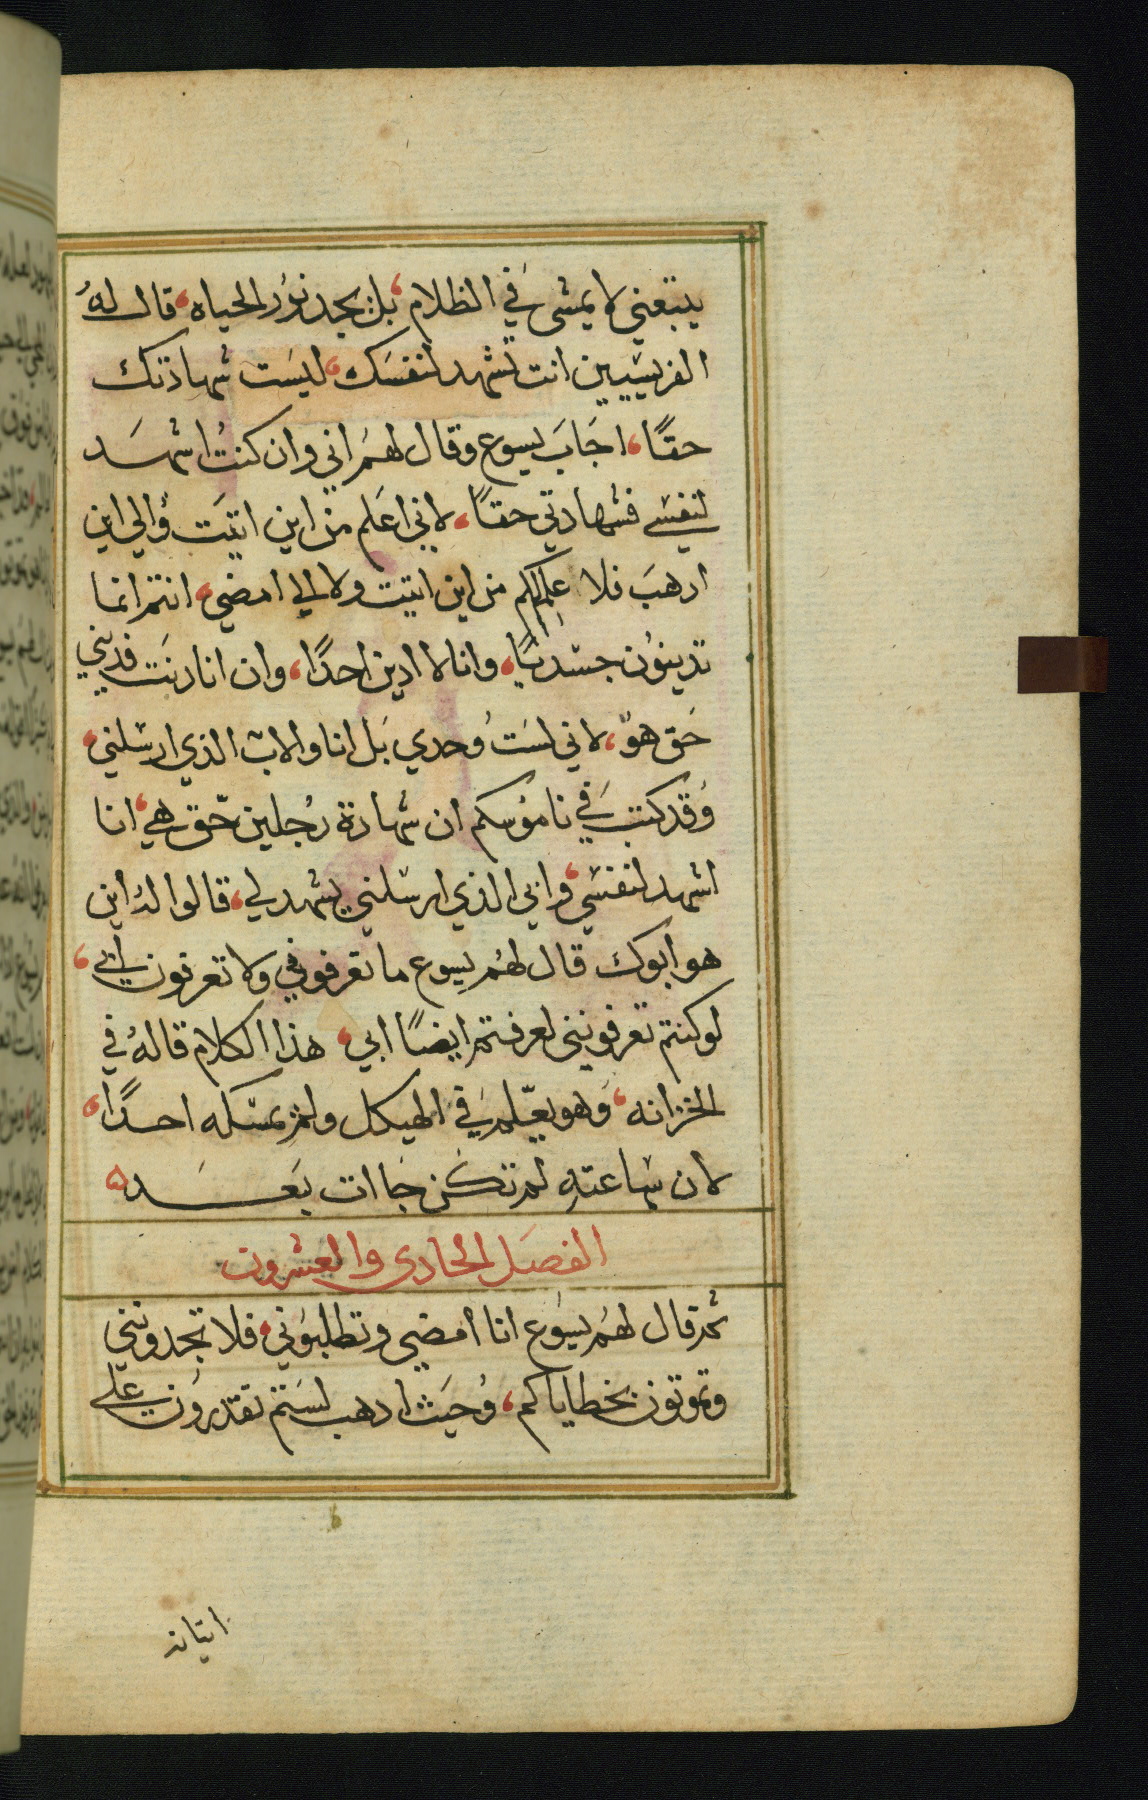 يتبعني لا يمشى في الظلام، بل يجد نور الحياه، قال له
الفريسيين انت تشهد لنفسك، ليست شهادتك
حقًا، اجاب يسوع وقال لهم اني وان كنت اشهد
لنفسي فشهادتي حقًا، لاني اعلم من اين اتيت والي اين
ادهب فلا علم لكم من اين اتيت ولا الي امضي، انتم انما
تدينون جسدانيًا، وانا لا ادين احدًا، وان انا دنت فديني
حق هو، لاني لست وحدي بل انا والاب الذي ارسلني،
وقد كتب في ناموسكم ان شهادة رجلين حق هي، انا
اشهد لنفسي، وابي الذي ارسلني يشهد لي، قالوا له اين
هو ابوك قال لهم يسوع ما تعرفوني ولا تعرفون ابي،
لو كنتم تعرفونني لعرفتم ايضًا ابي، هذا الكلام قاله في
الخزانه، وهو يعلم في الهيكل ولم يمسكه احدًا،
لان ساعته لم تكن جاات بعد
الفصل الحادى والعشرون
ثم قال لهم يسوع انا امضي وتطلبوني، فلا تجدونني
وتموتون بخطاياكم، وحيث ادهب لستم تقدرون علي
اتيانه